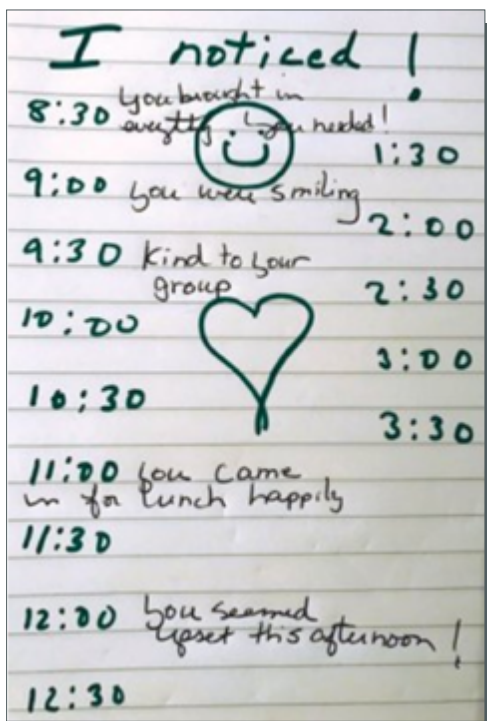 I noticed!
8:30 you brought in
everything you needed!
1:30
9:00 you were smiling
2:00
9:30 kind to your
group
2:30
10:00
3:00
10:30
3:30
11:00 you came
in for lunch happily
11:30
12:00 you seemed
upset this afternoon!
12:30